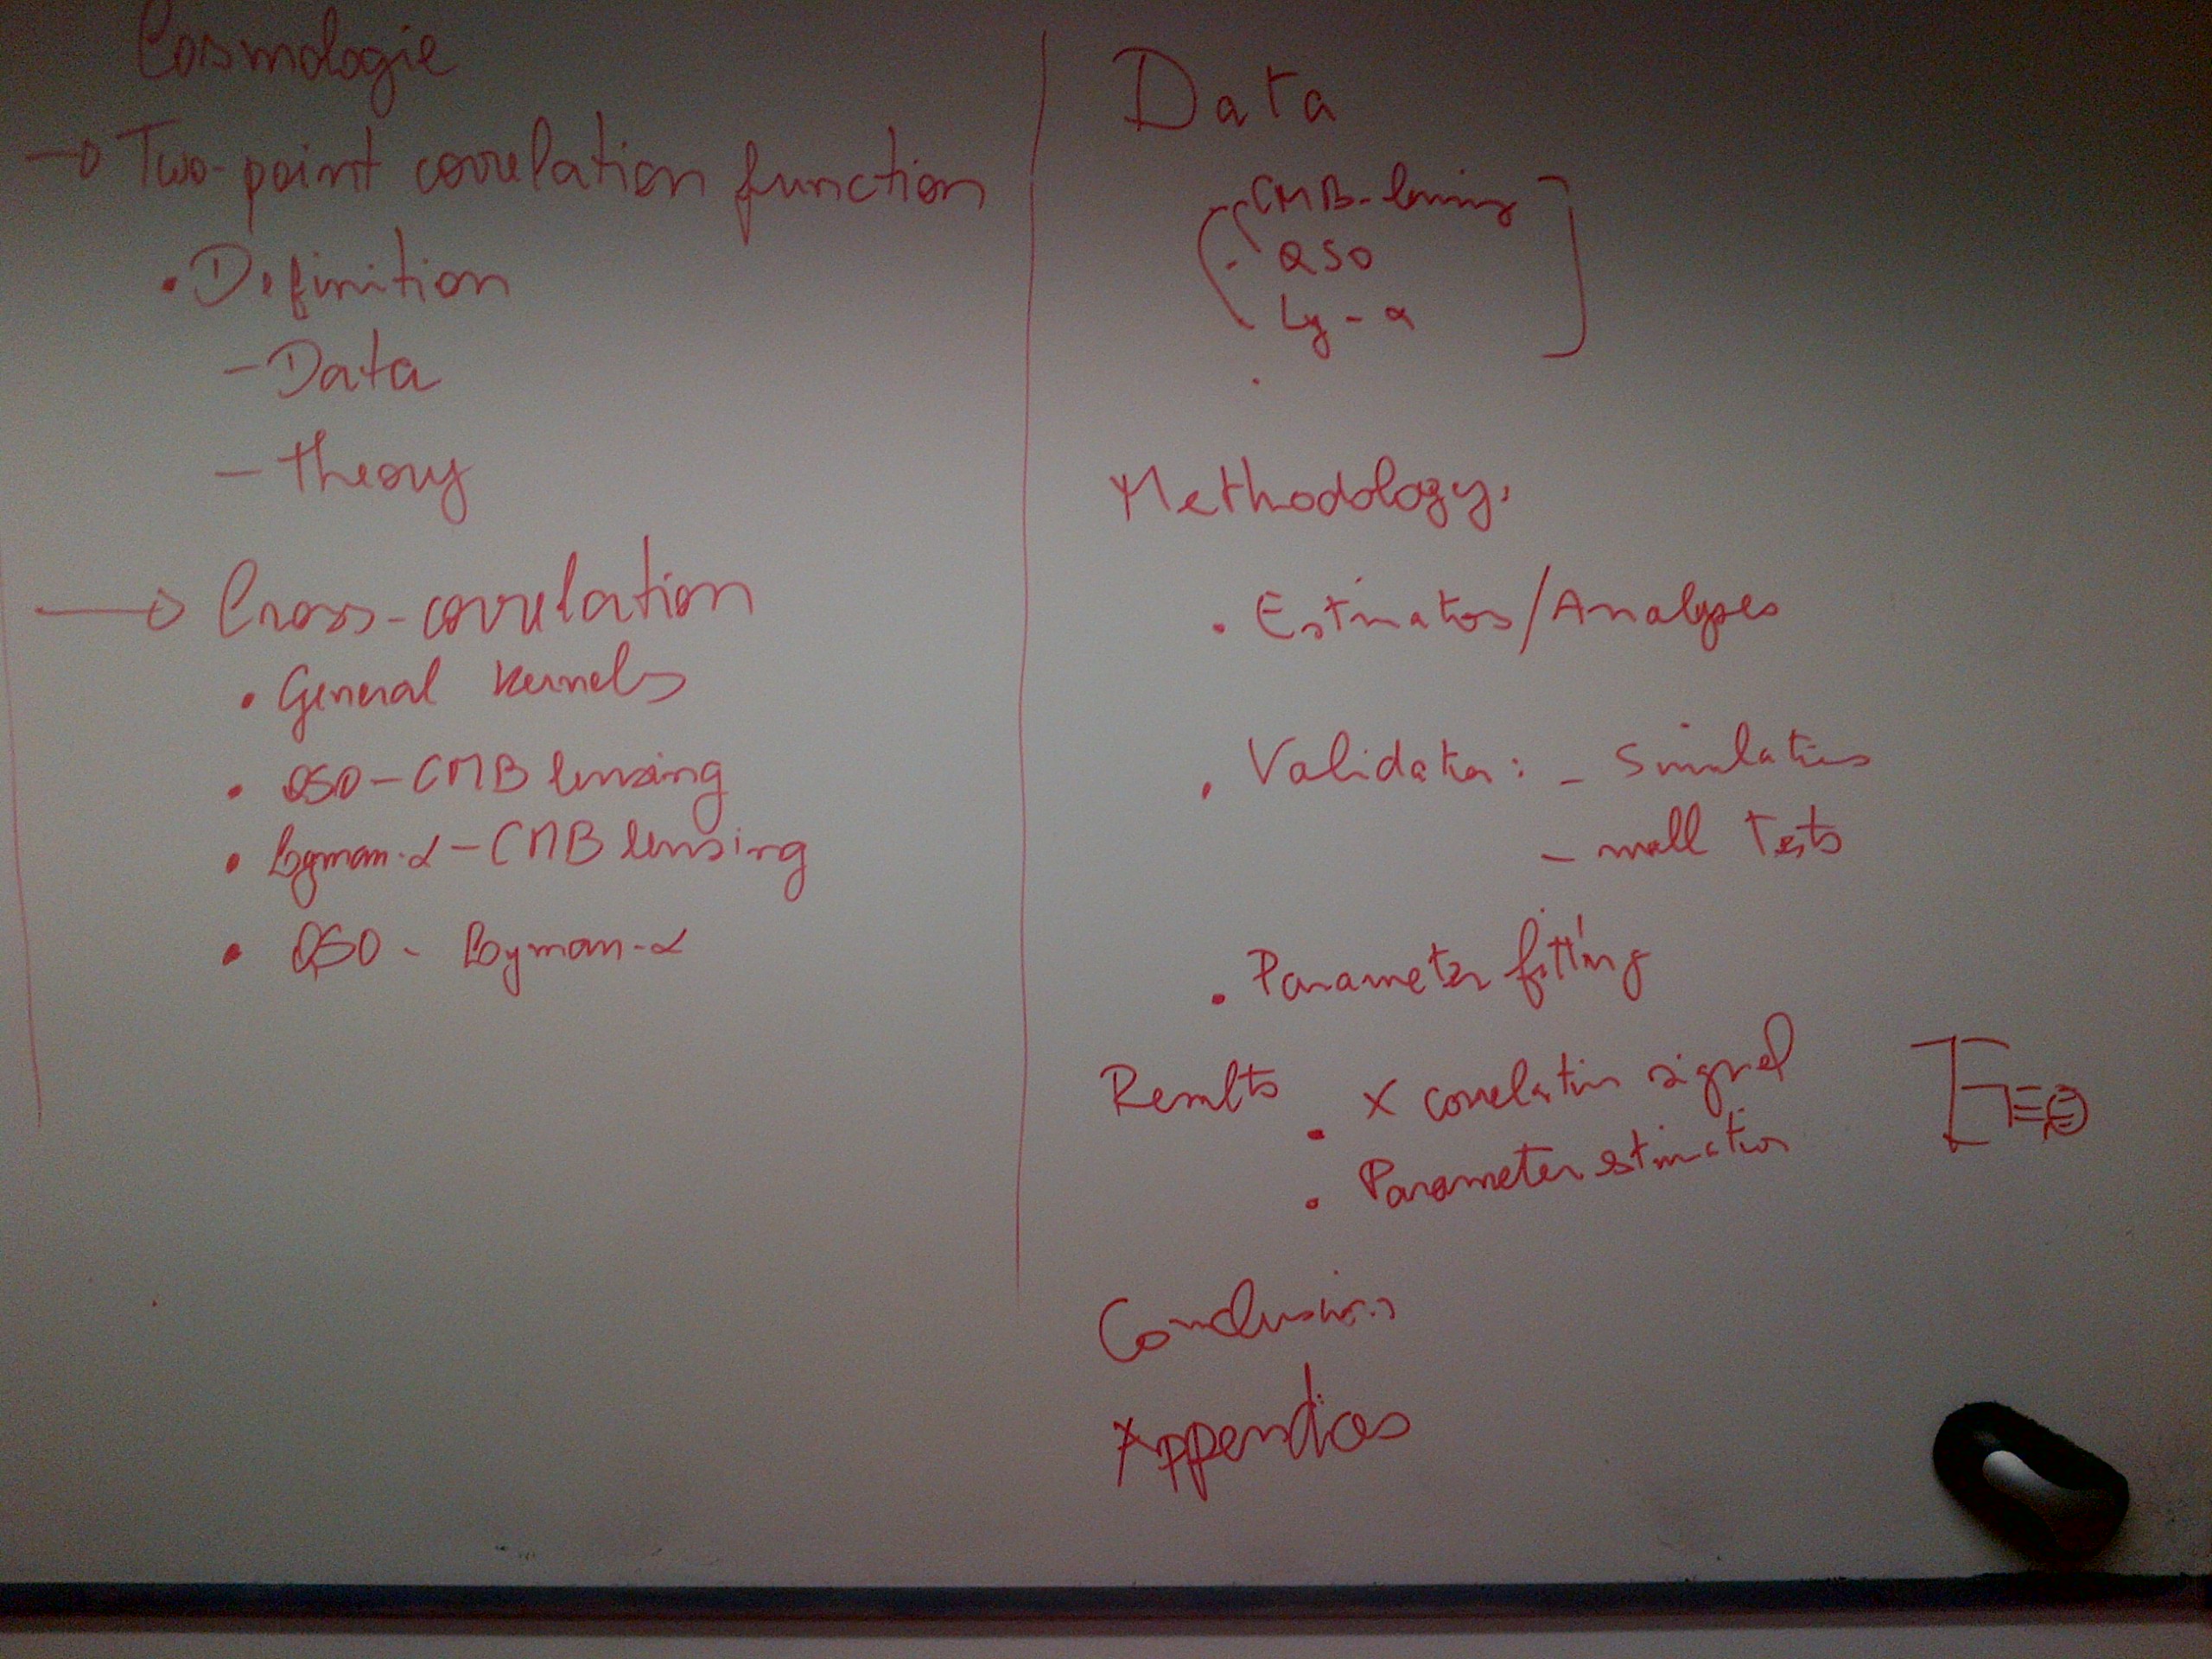 Cosmologie
→ Two-point correlation function
• Definition
- Data
- Theory
→ Cross-correlation
• General kernels
• QSO - CMB lensing
• Lyman-α - CMB lensing
• QSO - Lyman-α
Data
- CMB-lensing
- QSO
Ly-α
Methodology
• Estimators/Analyses
• Validation: - Simulations
- null Tests
• Parameter fitting
Results • X correlation signal
• Parameter estimation
Conclusions
Appendices